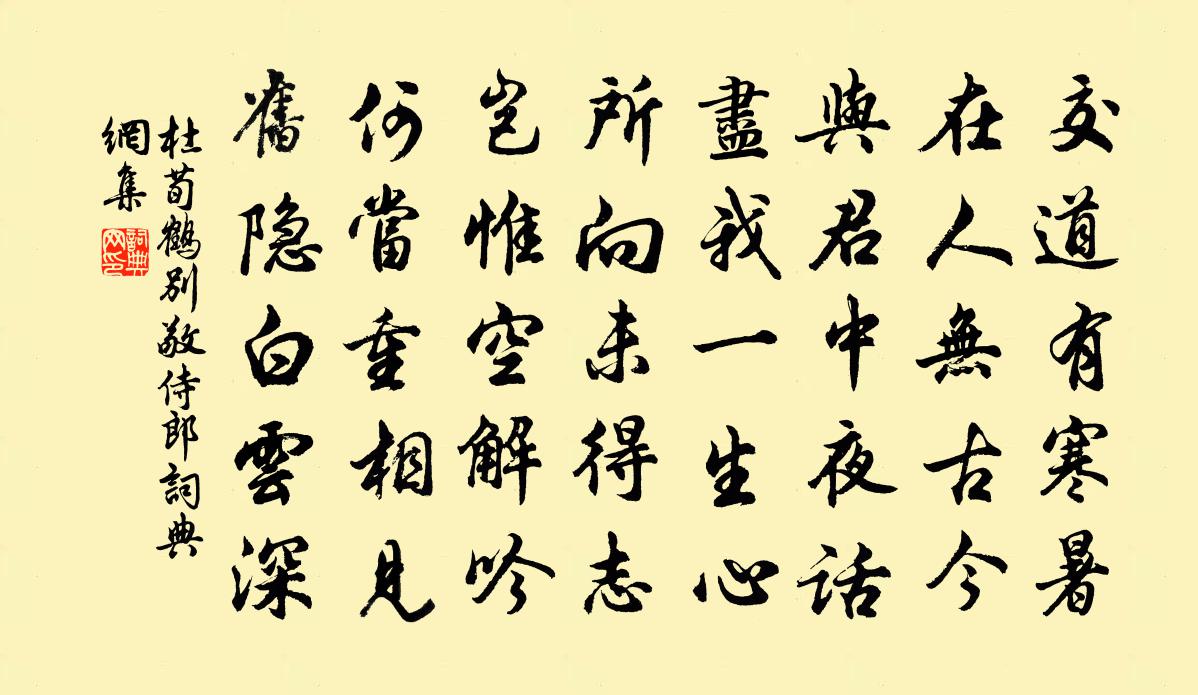 交道有寒暑
在人無古今
與君中夜話
盡我一生心
所向未得志
豈惟空解吟
何當重相見
舊隐白雲深
杜荀鶴別敬侍郎詞典
網集
詞典
网印